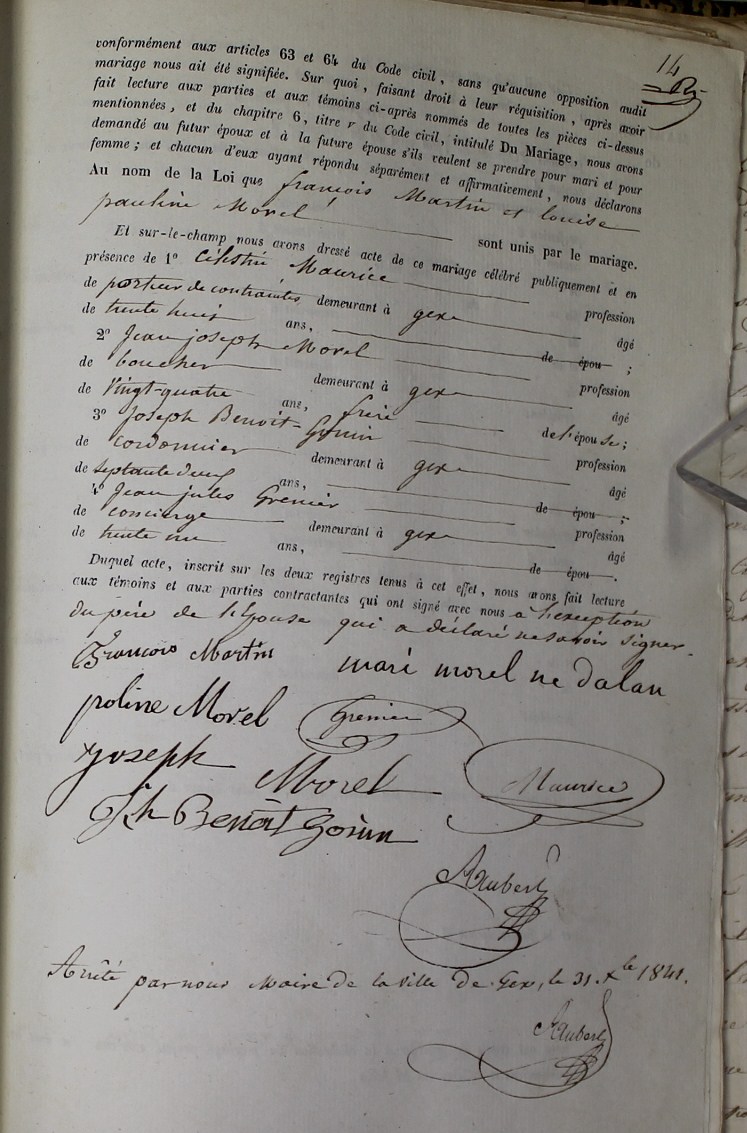 14
conformément aux articles 63 et 64 du Code civil, sans qu'aucune opposition audit
mariage nous ait été signifiée. Sur quoi, faisant droit à leur réquisition, après avoir
fait lecture aux parties et aux témoins ci-après nommés de toutes les pièces ci-dessus
mentionnées, et du chapitre 6, titre r du Code civil, intitulé Du Mariage, nous avons
demandé au futur époux et à la future épouse s'ils veulent se prendre pour mari et pour
femme; et chacun d'eux ayant répondu séparément et affirmativement, nous déclarons
Au nom de la Loi que françois Martin et louise
pauline Morel sont unis par le mariage.
Et sur-le-champ nous avons dressé acte de ce mariage célébré publiquement et en
présence de 1° Célestin Maurice profession
de porteur de contraintes demeurant à gex âgé
de trente huit ans, de épou ;
2° Jean joseph Morel profession
de boucher demeurant à gex âgé
de Vingt-quatre ans, frère de l'épouse;
3° Joseph Benoit-Gonin profession
de cordonnier demeurant à gex âgé
de septante deux ans, de épou ;
4° Jean jules Grenier profession
de concierge demeurant à gex âgé
de trente un ans, de épou .
Duquel acte, inscrit sur les deux registres tenus à cet effet, nous avons fait lecture
aux témoins et aux parties contractantes qui ont signé avec nous à l'exception
du père de l'Epouse qui a déclaré ne savoir signer.
François Martin mari morel ne dalan
poline Morel Grenier
Joseph Morel Maurice
Jh Benoit Gonin
Aubert
Arrêté par nous Maire de la Ville de Gex, le 31. Xbre 1841.
Aubert